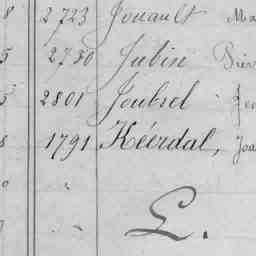 8 2723 Jouault Ma
5 2730 Jubin Pier
5 2801 Joubrel Je
8 1791 Kéerdal, Joa
" "
L.